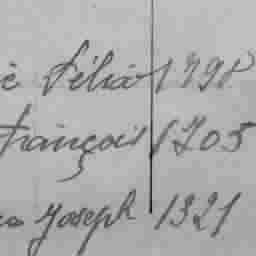 é Félia 1798
François 1705
Joseph 1321